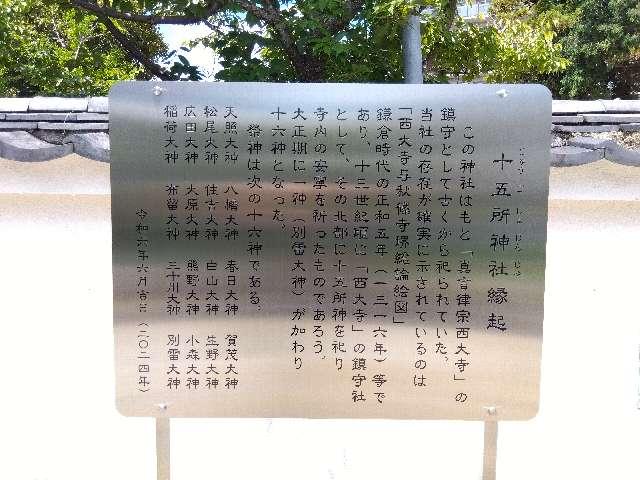 十五所神社縁起
この神社はもと「真言律宗西大寺」の
鎮守として古くから祀られていた。
当社の存在が確実に示されているのは
「西大寺与秋篠寺堺相論絵図」
鎌倉時代の正和五年(一三一六年)等で
あり、十三世紀頃に「西大寺」の鎮守社
として、その北部に十五所神を祀り
寺内の安寧を祈ったものであろう。
大正期に一神(別雷大神)が加わり
十六神となった。
祭神は次の十六神である。
天照大神 八幡大神 春日大神 賀茂大神
松尾大神 住吉大神 白山大神 生野大神
広田大神 大原大神 熊野大神 小森大神
稲荷大神 布留大神 三十川大神 別雷大神
令和六年六月吉日(二〇二四年)